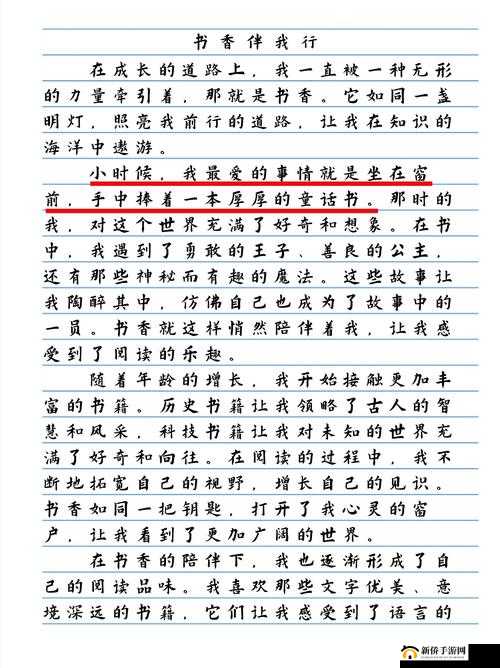 书香伴我行
在成长的道路上，我一直被一种无形
的力量牵引着，那就是书香。它如同一盏
明灯，照亮我前行的道路，让我在知识的
海洋中遨游。
小时候，我最爱的事情就是坐在窗
前，手中捧着一本厚厚的童话书。那时的
我，对这个世界充满了好奇和想象。在书
中，我遇到了勇敢的王子、善良的公主，
还有那些神秘而有趣的魔法。这些故事让
我陶醉其中，仿佛自己也成为了故事中的
一员。书香就这样悄然陪伴着我，让我感
受到了阅读的乐趣。
随着年龄的增长，我开始接触更加丰
富的书籍。历史书籍让我领略了古人的智
慧和风采，科技书籍让我对未知的世界充
满了好奇和向往。在阅读的过程中，我不
断地拓宽自己的视野，增长自己的见识。
书香如同一把钥匙，打开了我心灵的窗
户，让我看到了更加广阔的世界。
在书香的陪伴下，我也逐渐形成了自
己的阅读品味。我喜欢那些文字优美、意
境深远的书籍，它们让我感受到了语言的
新侨手游网